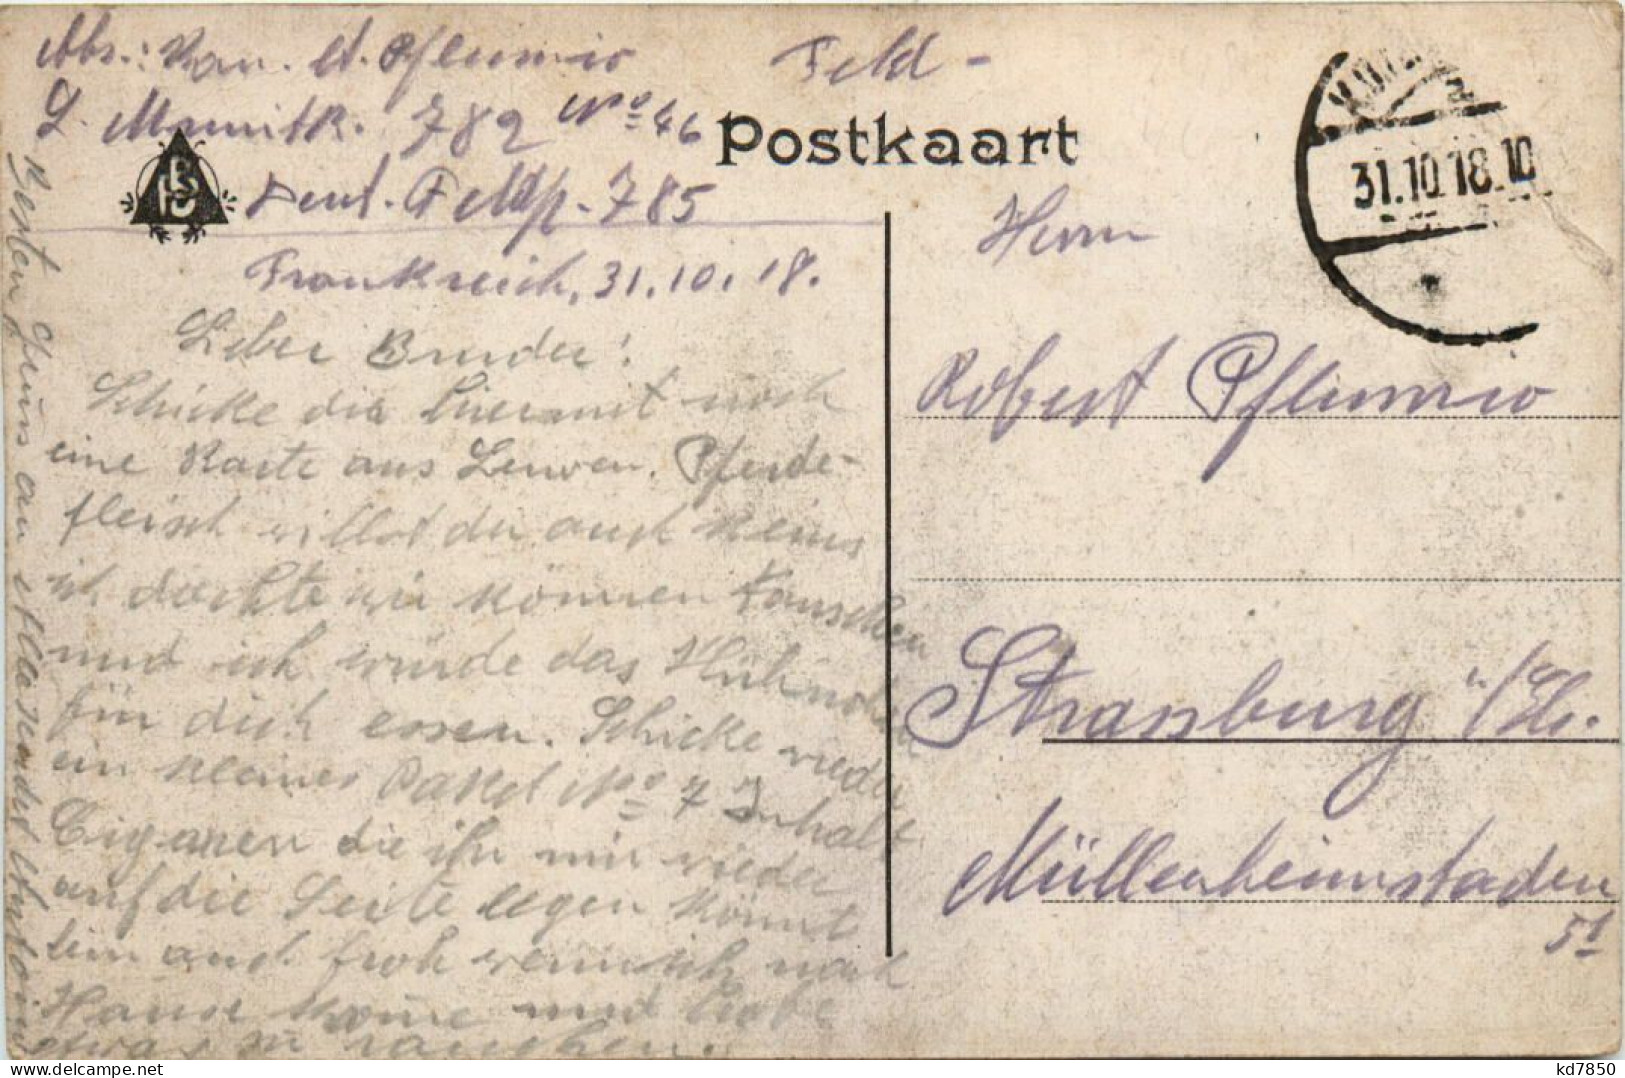 Abs.: Kan. A. Pflumio
L. Munitk. 782 No 46
Deut. Feldp. 785
Frankreich, 31.10.18.
Lieber Bruder!
Schicke dir hiermit noch
eine Karte aus Leuven. Pferde-
fleisch willst du auch keins
ich dachte wir können tauschen
und ich würde das Hühnchen
für dich essen. Schicke wieder
ein kleines Paket No 7 Inhalt
Cigarren die ihr mir wieder
auf die Seite legen könnt
bin auch froh wenn ich nach
Hause komme und habe
etwas zu rauchen.
Besten Gruss an
Feld-
Postkaart
31.10.18.10
Herrn
Robert Pflumio
Strassburg i/Els.
Müllenheimstaden
51
kd7850